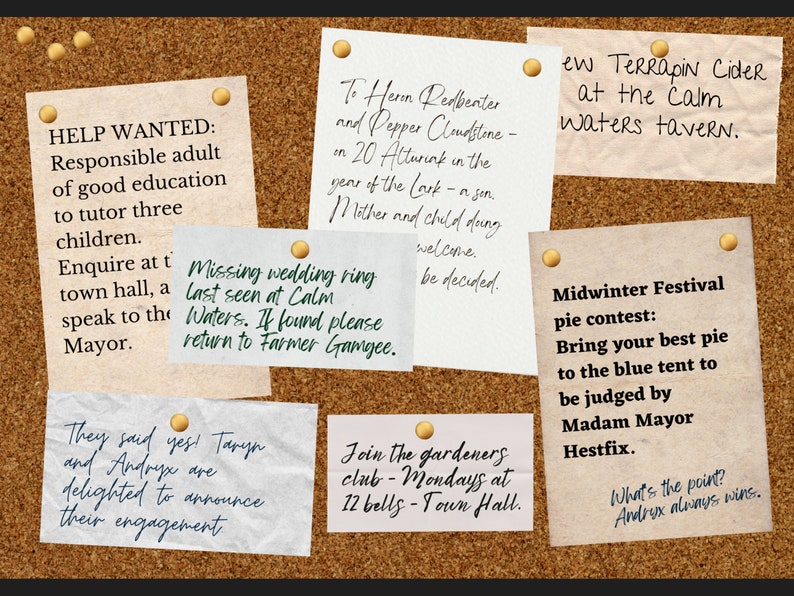 HELP WANTED:
Responsible adult
of good education
to tutor three
children.
Enquire at
town hall,
speak to the
Mayor.
To Heron Redbeater
and Pepper Cloudstone -
on 20 Alturiak in the
year of the Lark - a son.
Mother and child doing
welcome.
be decided.
ew Terrapin Cider
at the Calm
Waters tavern.
Missing wedding ring
last seen at Calm
Waters. If found please
return to Farmer Gamgee.
Midwinter Festival
pie contest:
Bring your best pie
to the blue tent to
be judged by
Madam Mayor
Hestfix.
What's the point?
Andryx always wins.
They said yes! Taryn
and Andryx are
delighted to announce
their engagement.
Join the gardeners
club - Mondays at
12 bells - Town Hall.